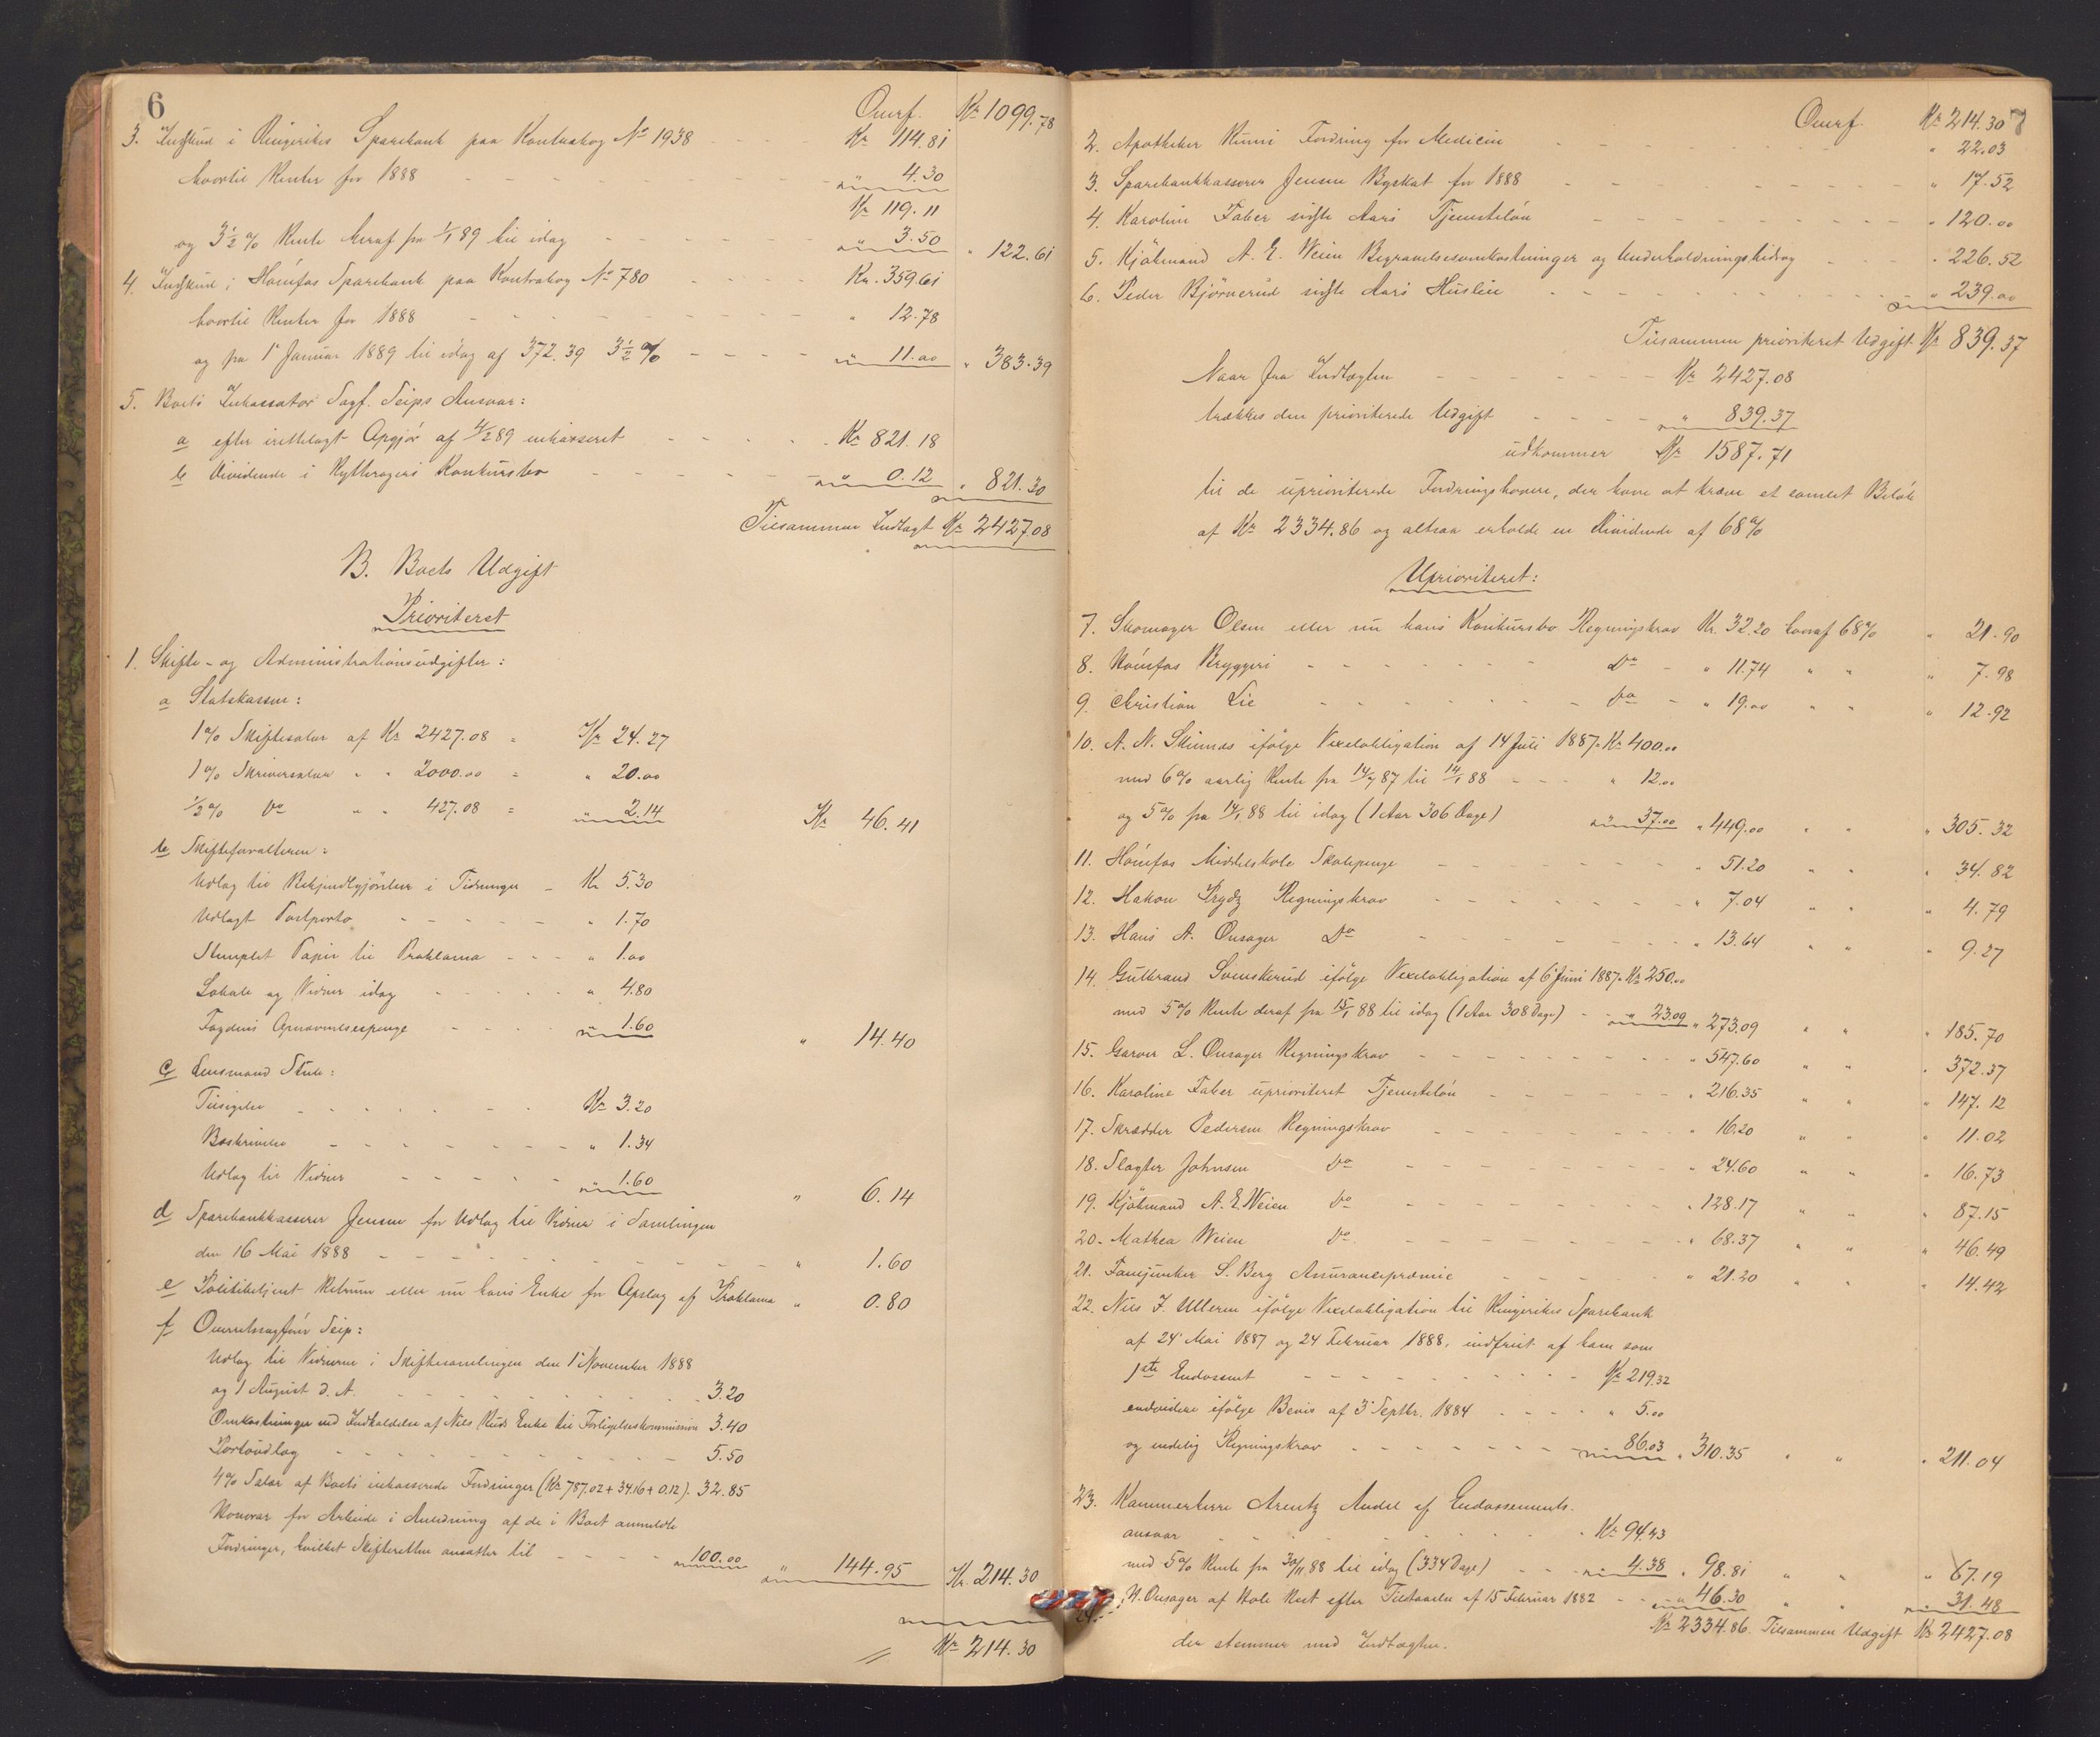 6
Overf. Kr 1099.78
3. Indskud i Ringerikes Sparebank paa Kontrabog No 1938 Kr 114.81
hvortil Renter for 1888 " 4.30
Kr 119.11
og 3½ % Rente heraf fra 1/1 89 til idag " 3.50 " 122.61
4. Indskud i Hönefos Sparebank paa Kontrabog No 780 Kr. 359.61
hvortil Renter for 1888 " 12.78
og fra 1 Januar 1889 til idag af 372.39 3½ % " 11.00 " 383.39
5. Boets Inkassator Sagf. Seips Ansvar:
a efter irettelagt Opgjör af 4/2 89 inkasseret Kr 821.18
b Dividende i Konkursbo " 0.12 " 821.30
Tilsammen Indtægt Kr 2427.08
B. Boets Udgift
Prioriteret
1. Skifte- og Administrationsudgifter:
a Statskassen:
1% Skiftesalær af Kr 2427.08 = Kr 24.27
1% Skriversalær " " 2000.00 = " 20.00
½% Do " " 427.08 = " 2.14 Kr 46.41
b Skifteforvalteren:
Udlæg til Bekjendtgjörelser i Tidninger Kr 5.30
Udlagt Postporto " 1.70
Stemplet Papir til Proklama " 1.00
Lokale og Vidner idag " 4.80
Fogdens Opnævnelsespenge " 1.60 " 14.40
c Lensmand Stub:
Tilsigelse Kr 3.20
Beskrivelse " 1.34
Udlæg til Vidner " 1.60 " 6.14
d Sparebankkasserer Jensen for Udlæg til Vidner i Samlingen
den 16 Mai 1888 " 1.60
e Politibetjent eller nu hans Enke for Opslag af Proklama " 0.80
f Overretssagförer Seip:
Udlæg til Vidnerne i Skiftesamlingen den 1 November 1888
og 1 August d. A. 3.20
Omkostninger ved Indkaldelse af Niels Ruds Enke til Forligelseskommission 3.40
Portoudlæg 5.50
4% Salær af Boets inkasserede Fordringer (Kr 787.02 + 34.16 + 0.12). 32.85
Honorar for Arbeide i Anledning af de i Boet anmeldte
Fordringer, hvilket Skifteretten ansætter til 100.00 " 144.95 Kr. 214.30
Kr 214.30
7
Overf. Kr 214.30
2. Apotheker Fordring for Medicin " 22.03
3. Sparebankkasserer Jensen Byskat for 1888 " 17.52
4. Karoline Faber sidste Aars Tjenestelön " 120.00
5. Kjöbmand A. E. Weien Begravelsesomkostninger og Underholdningsbidrag " 226.52
6. Peder Björnerud sidste Aars Husleie " 239.00
Tilsammen prioriteret Udgift Kr 839.37
Naar fra Indtægten Kr 2427.08
trækkes den prioriterede Udgift " 839.37
udkommer Kr 1587.71
til de uprioriterede Fordringshavere, der have at kræve et samlet Belöb
af Kr 2334.86 og altsaa erholde en Dividende af 68%
Uprioriteret:
7. Skomager Olsen eller nu hans Konkursbo Regningskrav Kr. 32.20 hvoraf 68% " 21.90
8. Hönefos Bryggeri Do " 11.74 " " " 7.98
9. Christian Lie Do " 19.00 " " " 12.92
10. A. N. ifölge Vexelobligation af 14 Juli 1887 Kr 400.00
med 6% aarlig Rente fra 14/7 87 til 14/1 88 " 12.00
og 5% fra 14/1 88 til idag (1 Aar 306 Dage) " 37.00 " 449.00 " " " 305.32
11. Hönefos Middelskole Skolepenge " 51.20 " " " 34.82
12. Hakon Prydz Regningskrav " 7.04 " " " 4.79
13. Hans A. Onsager Do " 13.64 " 9.27
14. Gulbrand Svenskerud ifölge Vexelobligation af 6 Juni 1887 Kr 250.00
med 5% Rente deraf fra 15/1 88 til idag (1 Aar 308 Dage) " 23.09 " 273.09 " " " 185.70
15. Garver L. Onsager Regningskrav " 547.60 " " " 372.37
16. Karoline Faber uprioriteret Tjenestelön " 216.35 " " " 147.12
17. Skrædder Pedersen Regningskrav " 16.20 " " " 11.02
18. Slagter Johnsen Do " 24.60 " " " 16.73
19. Kjöbmand A. E. Weien Do " 128.17 " " " 87.15
20. Mathea Weien Do " 68.37 " " " 46.49
21. S. Berg Assurancepræmie " 21.20 " 14.42
22. Niels J. Ulleren ifölge Vexelobligation til Ringerikes Sparebank
af 24 Mai 1887 og 24 Februar 1888, indfriet af ham som
1ste Endossent Kr 219.32
endvidere ifölge Bevis af 3 Septbr. 1884 " 5.00
og endelig Regningskrav 86.03 " 310.35 " " " 211.04
23. Kammerherre Arentz Andel af Endossements-
ansvar Kr 94.43
med 5% Rente fra 30/11 88 til idag (334 Dage) 4.38 " 98.81 " " " 67.19
24. N. Onsager af Hole efter Tilstaaelse af 15 Februar 1882 " 46.30 " " 31.48
Kr 2334.86. Tilsammen Udgift Kr 2427.08
der stemmer med Indtægten.